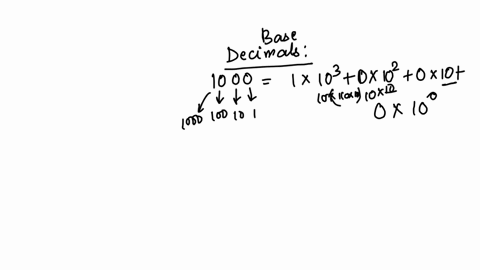 Base
Decimals:
1000 = 1 × 10³ + 0 × 10² + 0 × 10 +
10 × 10
1000 100 10 1
0 × 10⁰